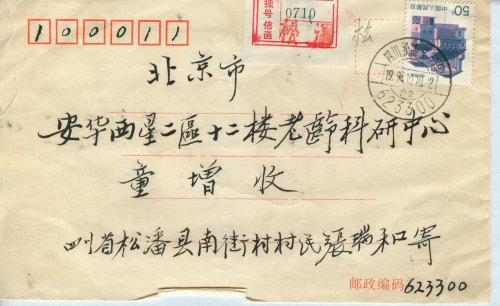 100011
挂号信函
0710
松
50分
中国人民邮政
北京市
安华西里二區十二楼老龄科研中心
童增收
四川省松潘县南街村村民張瑞和寄
623300
邮政编码 623300